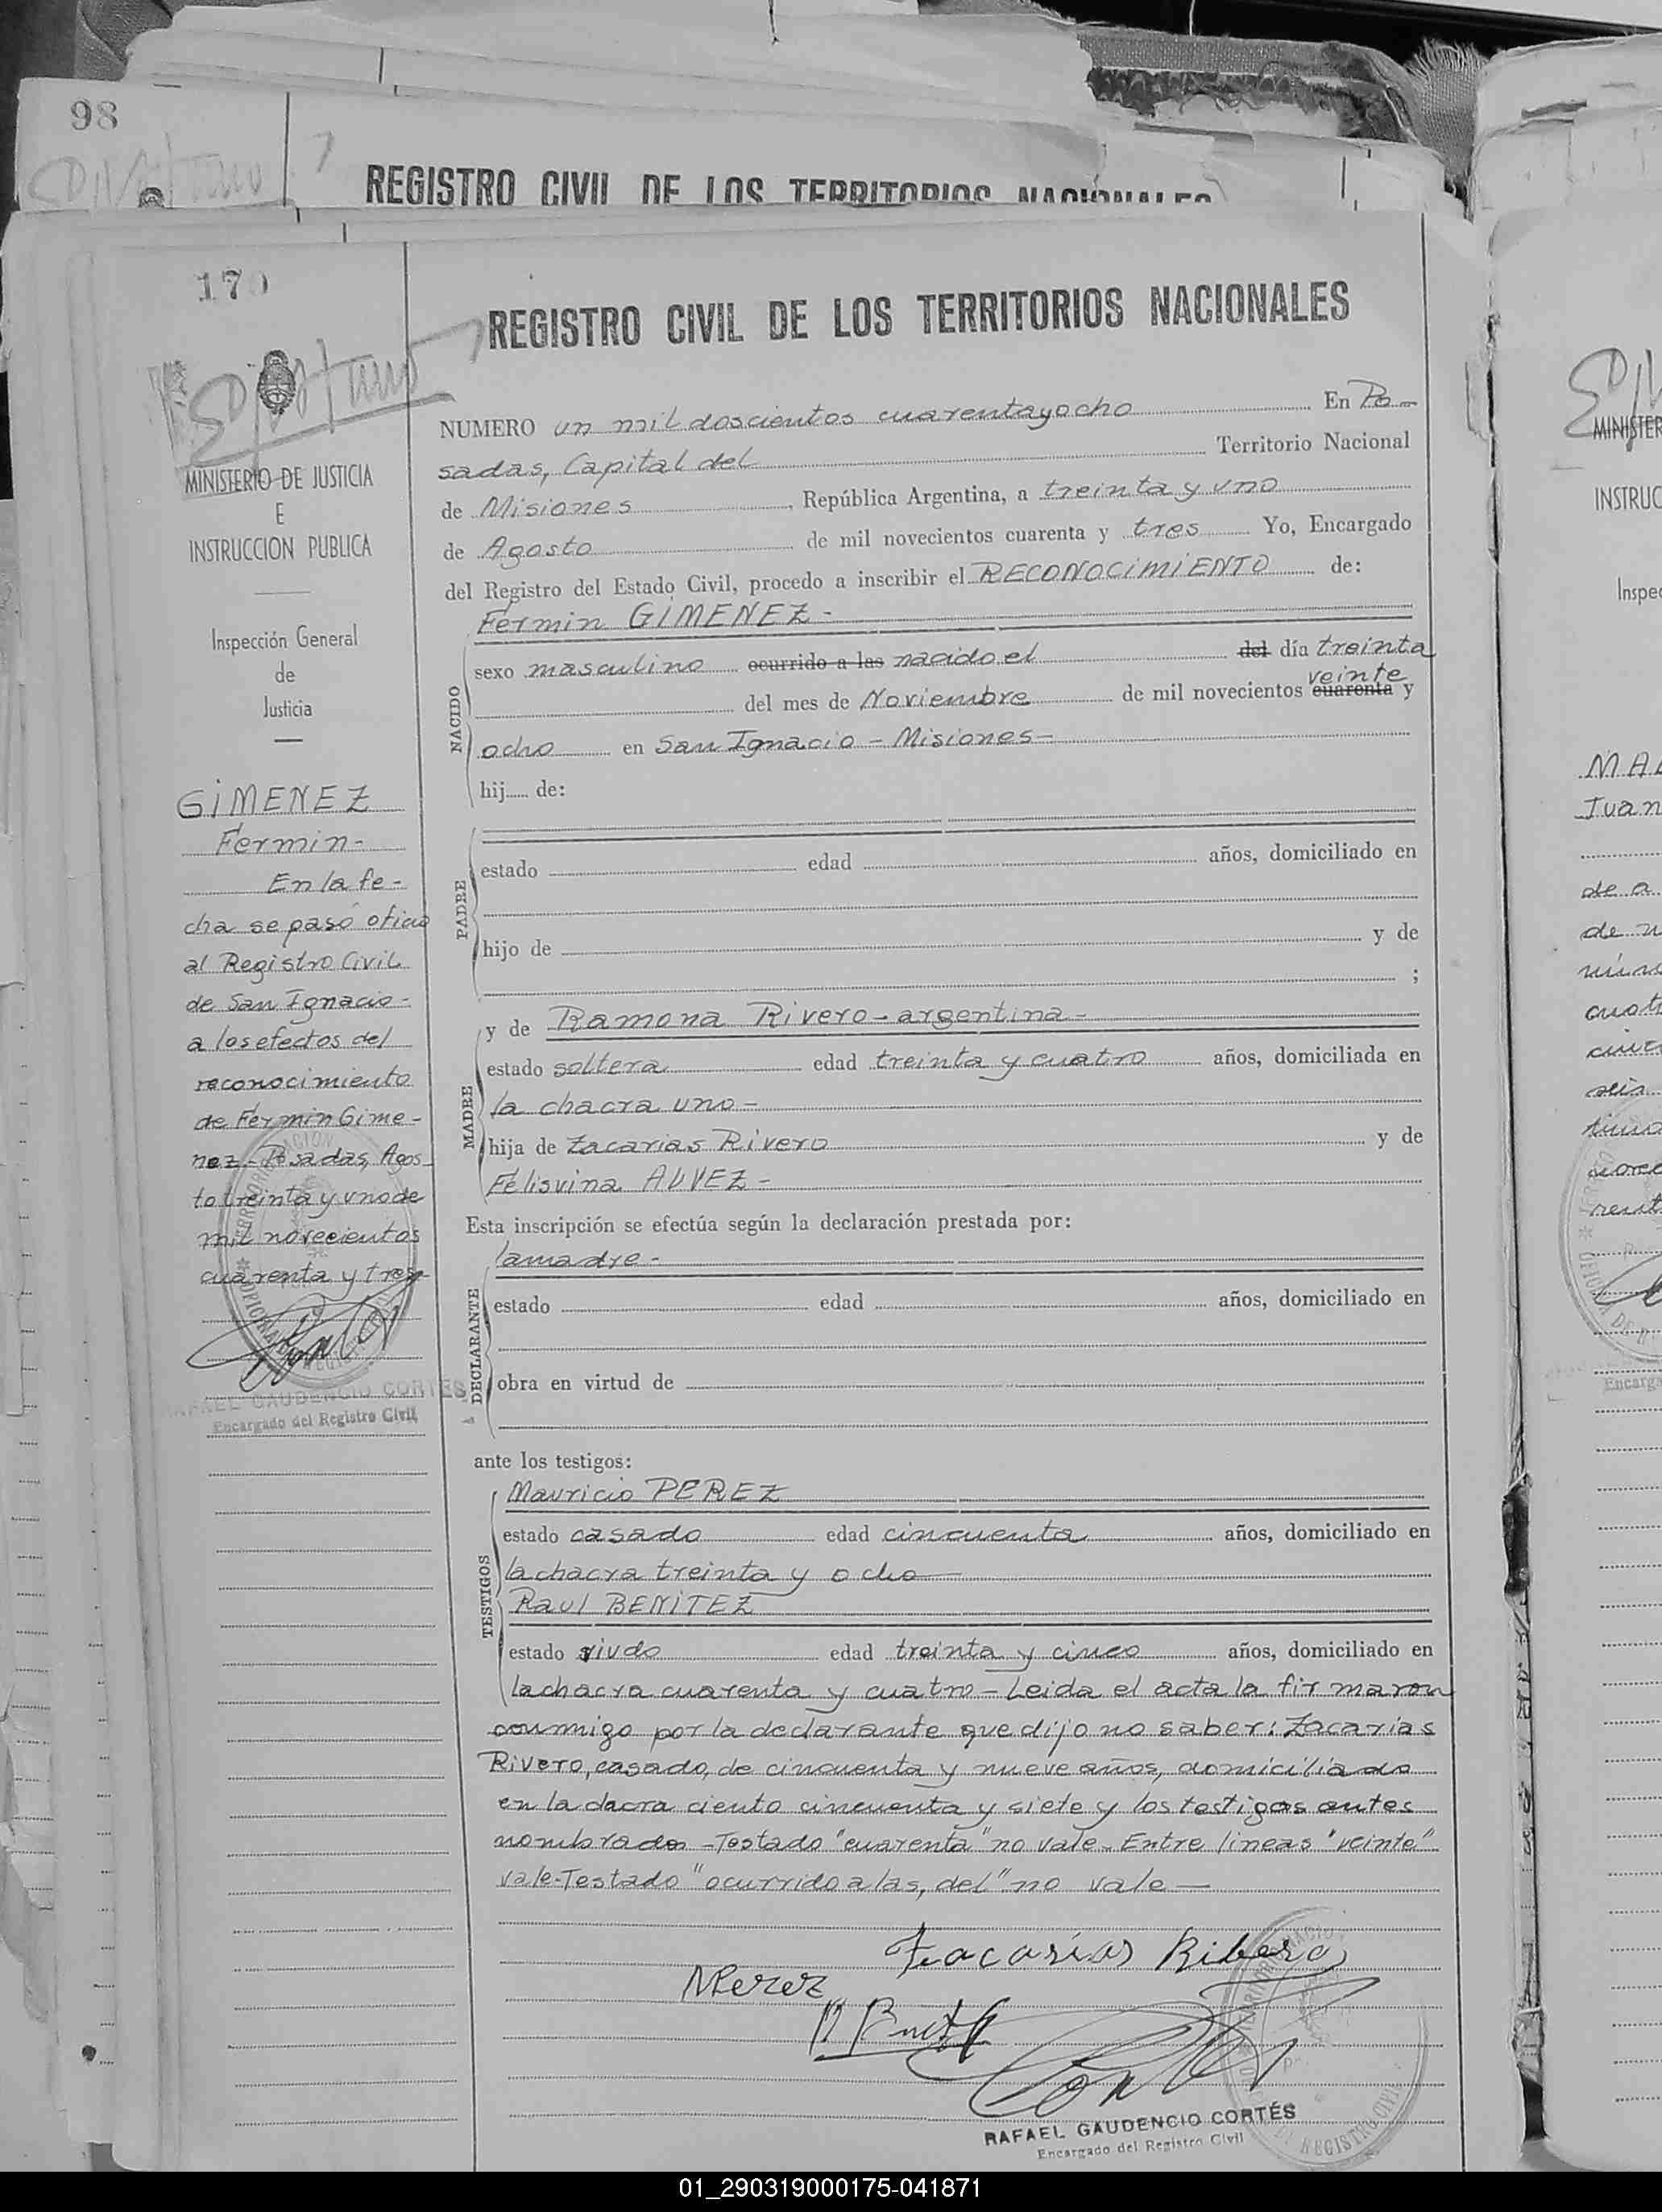 98
REGISTRO CIVIL DE LOS TERRITORIOS NACIONALES
REGISTRO CIVIL DE LOS TERRITORIOS NACIONALES
MINISTERIO DE JUSTICIA
E
INSTRUCCION PUBLICA
Inspección General
de
Justicia
GIMENEZ
Fermin-
En la fe-
cha se pasó oficio
al Registro Civil
de San Ignacio-
a los efectos del
reconocimiento
de Fermin Gime-
nez-Posadas, Agos-
to treinta y uno de
mil novecientos
cuarenta y tres
RAFAEL GAUDENCIO CORTES
Encargado del Registro Civil
NUMERO un mil doscientos cuarentayocho En Po-
sadas, Capital del Territorio Nacional
de Misiones, República Argentina, a treinta y uno
de Agosto de mil novecientos cuarenta y tres Yo, Encargado
del Registro del Estado Civil, procedo a inscribir el RECONOCIMIENTO de:
Fermin GIMENEZ-
NACIDO
sexo masculino ocurrido a las nacido el del día treinta
veinte
del mes de Noviembre de mil novecientos cuarenta y
ocho en San Ignacio - Misiones-
hij de:
PADRE
estado edad años, domiciliado en
hijo de y de
;
MADRE
y de Ramona Rivero-argentina-
estado soltera edad treinta y cuatro años, domiciliada en
la chacra uno-
hija de Zacarias Rivero y de
Felisvina ALVEZ-
Esta inscripción se efectúa según la declaración prestada por:
DECLARANTE
la madre-
estado edad años, domiciliado en
obra en virtud de
ante los testigos:
TESTIGOS
Mauricio PEREZ
estado casado edad cincuenta años, domiciliado en
la chacra treinta y ocho
Raul BENITEZ
estado viudo edad treinta y cinco años, domiciliado en
la chacra cuarenta y cuatro-Leida el acta la firmaron
conmigo por la declarante que dijo no saber: Zacarias
Rivero, casado, de cincuenta y nueve años, domiciliado
en la dacra ciento cincuenta y siete y los testigos antes
nombrados-Testado "cuarenta" no vale-Entre lineas "veinte"
vale-Testado "ocurrido a las, del" no vale-
Zacarías Ribero
MPerez
RAFAEL GAUDENCIO CORTÉS
Encargado del Registro Civil
INSTRUC
Inspec
MAL
Juan
de a
01_290319000175-041871